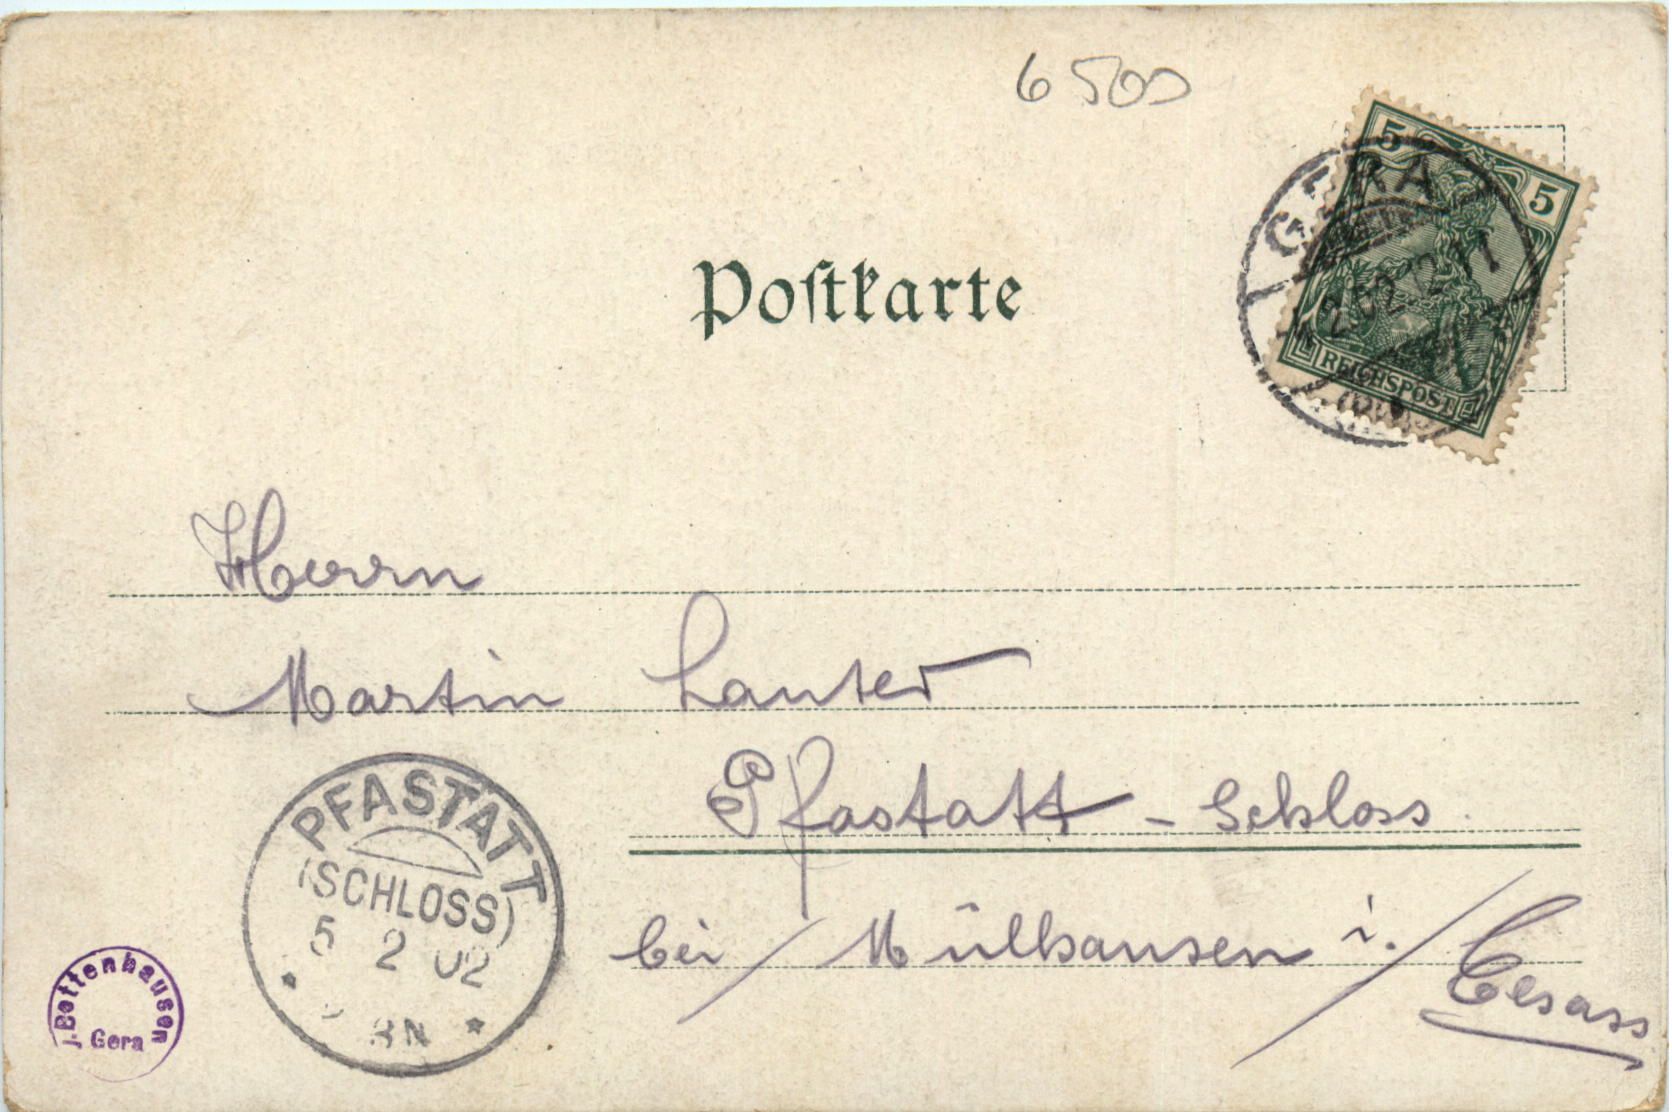 6500
5 5
GERA
REICHSPOST
Postkarte
Herrn
Martin Lauter
Pfastatt - Schloss
bei / Mülhausen i. / Elsass
PFASTATT
(SCHLOSS)
5 2 02
8 N
J. Bettenhausen
Gera